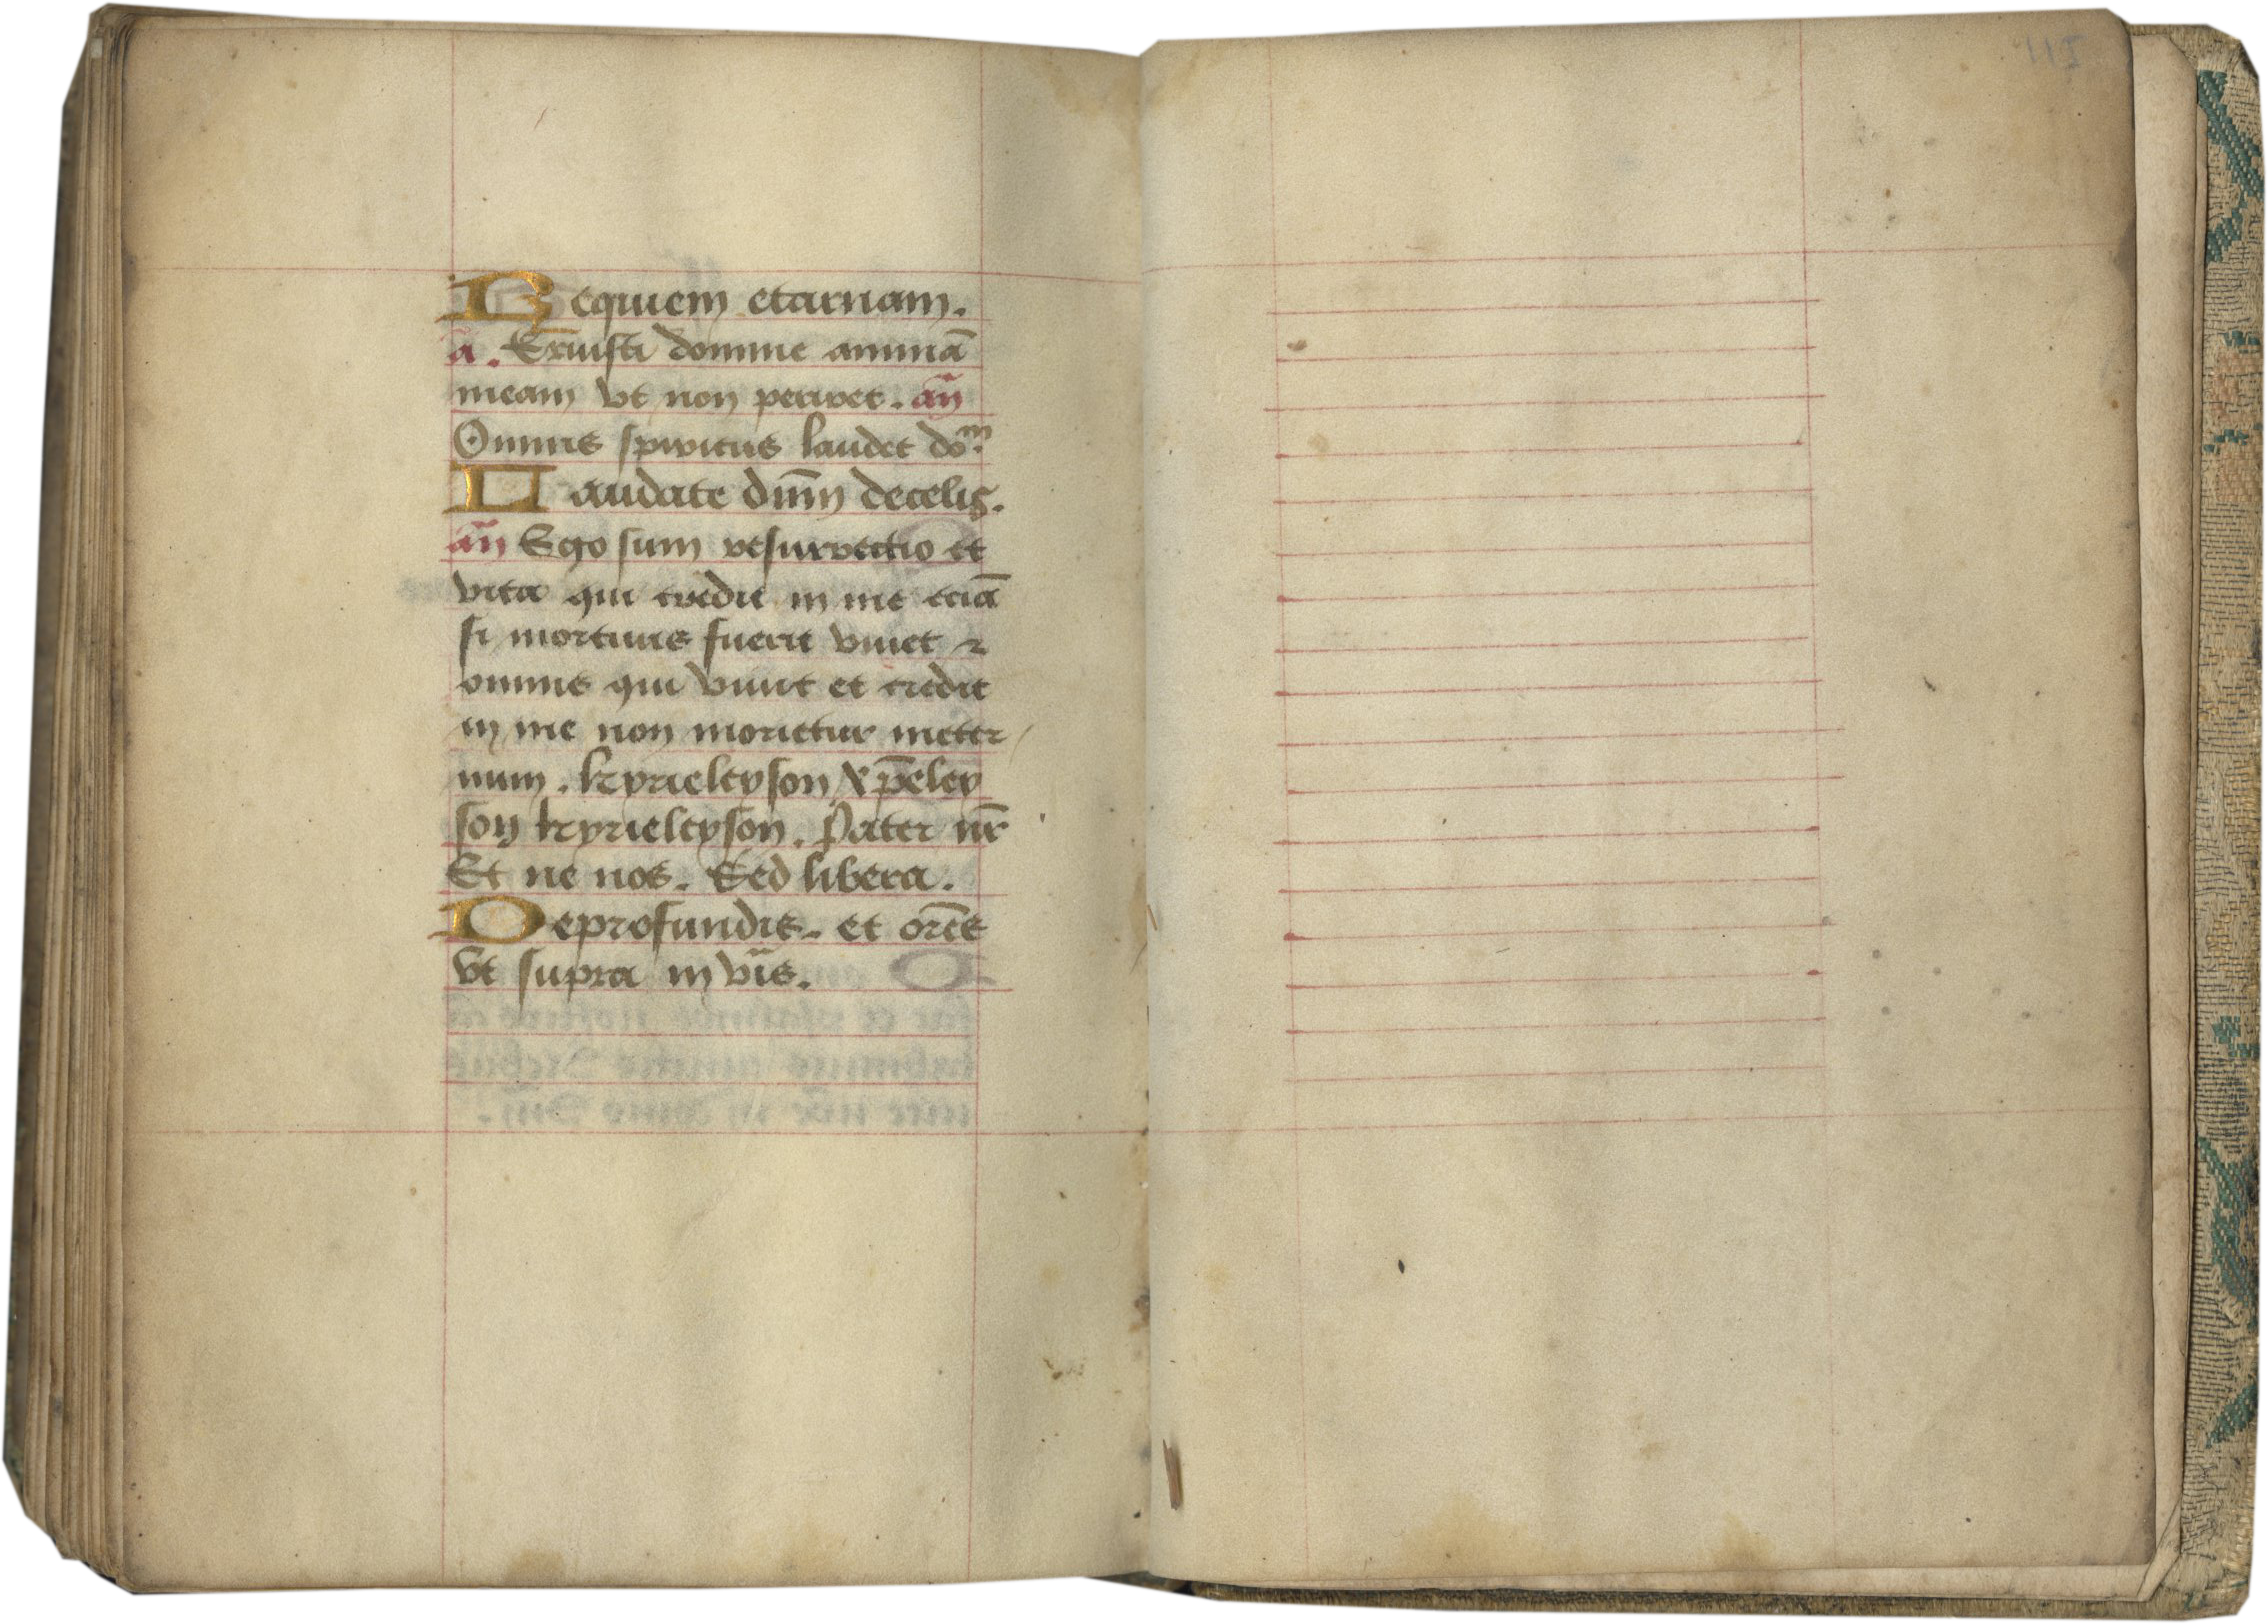 Requiem eternam.
a. Eruisti domine animā
meam vt non periret. an̄
Omnis spiritus laudet dom̄.
Laudate dnm̄ decelis.
an̄ Ego sum resurrectio et
vita qui credit in me eciā
si mortuus fuerit viuet ⁊
omnis qui viuit et credit
in me non morietur ineter
num. kyrieleyson xp̄eley
son kyrieleyson. Pater nr̄
Et ne nos. Sed libera.
Deprofundis. et orēs
vt supra in vīs.